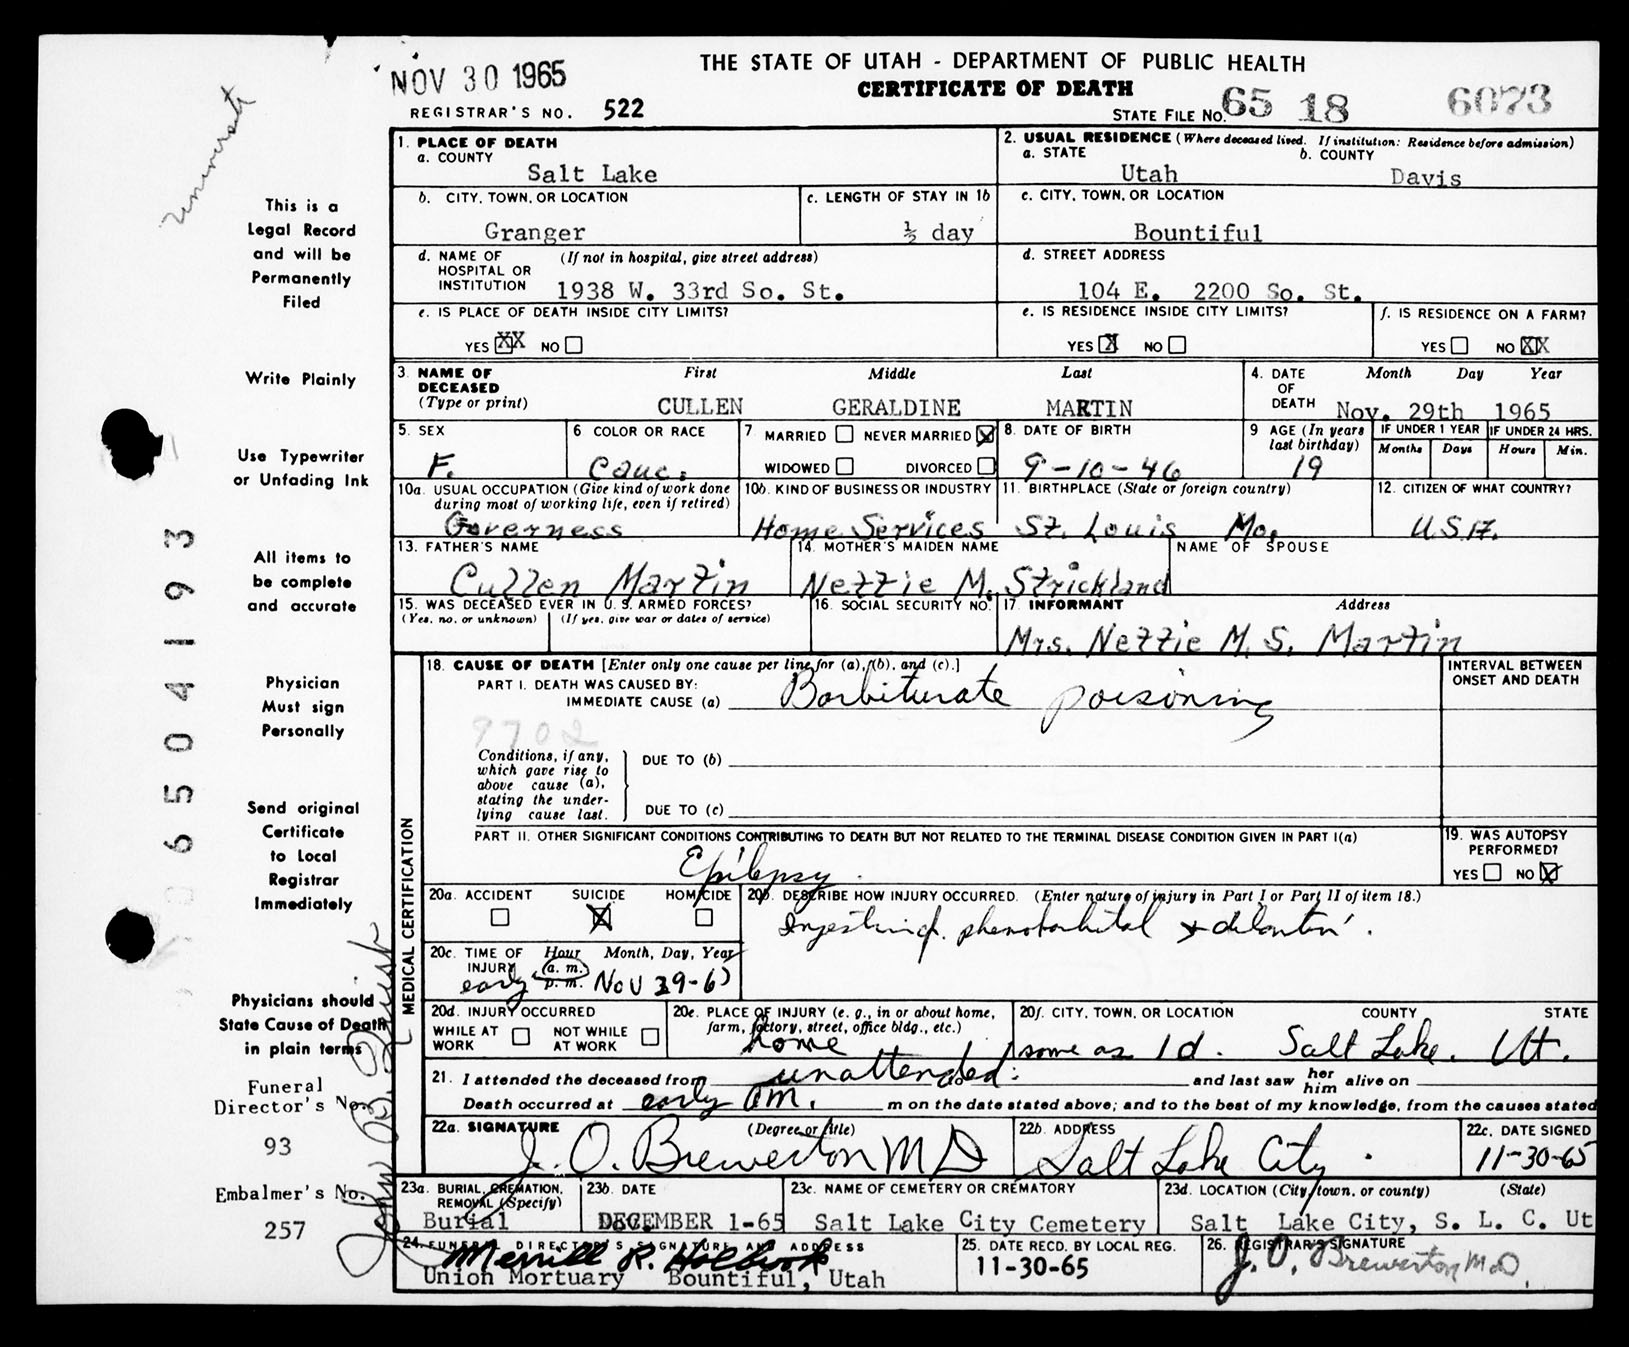 NOV 30 1965
THE STATE OF UTAH - DEPARTMENT OF PUBLIC HEALTH
CERTIFICATE OF DEATH
REGISTRAR'S NO. 522
STATE FILE NO. 65 18 6073
This is a
Legal Record
and will be
Permanently
Filed
Write Plainly
Use Typewriter
or Unfading Ink
All items to
be complete
and accurate
Physician
Must sign
Personally
Send original
Certificate
to Local
Registrar
Immediately
Physicians should
State Cause of Death
in plain terms
Funeral
Director's No.
93
Embalmer's No.
257
6504193
1. PLACE OF DEATH
a. COUNTY
Salt Lake
2. USUAL RESIDENCE (Where deceased lived. If institution: Residence before admission)
a. STATE b. COUNTY
Utah Davis
b. CITY, TOWN, OR LOCATION
Granger
c. LENGTH OF STAY IN 1b
½ day
c. CITY, TOWN, OR LOCATION
Bountiful
d. NAME OF (If not in hospital, give street address)
HOSPITAL OR
INSTITUTION 1938 W. 33rd So. St.
d. STREET ADDRESS
104 E. 2200 So. St.
e. IS PLACE OF DEATH INSIDE CITY LIMITS?
YES XX NO
e. IS RESIDENCE INSIDE CITY LIMITS?
YES X NO
f. IS RESIDENCE ON A FARM?
YES NO XX
3. NAME OF First Middle Last
DECEASED
(Type or print) CULLEN GERALDINE MARTIN
4. DATE Month Day Year
OF
DEATH Nov. 29th 1965
5. SEX
F.
6 COLOR OR RACE
Cauc.
7 MARRIED NEVER MARRIED X
WIDOWED DIVORCED
8. DATE OF BIRTH
9-10-46
9 AGE (In years
last birthday)
19
IF UNDER 1 YEAR IF UNDER 24 HRS.
Months Days Hours Min.
10a. USUAL OCCUPATION (Give kind of work done
during most of working life, even if retired)
Governess
10b. KIND OF BUSINESS OR INDUSTRY
Home Services
11. BIRTHPLACE (State or foreign country)
St. Louis Mo.
12. CITIZEN OF WHAT COUNTRY?
U.S.A.
13. FATHER'S NAME
Cullen Martin
14. MOTHER'S MAIDEN NAME
Nettie M. Strickland
NAME OF SPOUSE
15. WAS DECEASED EVER IN U. S. ARMED FORCES?
(Yes, no, or unknown) (If yes, give war or dates of service)
16. SOCIAL SECURITY NO.
17. INFORMANT Address
Mrs. Nettie M. S. Martin
MEDICAL CERTIFICATION
18. CAUSE OF DEATH [Enter only one cause per line for (a), (b), and (c).]
PART I. DEATH WAS CAUSED BY:
IMMEDIATE CAUSE (a) Barbiturate poisoning
9702
Conditions, if any,
which gave rise to
above cause (a),
stating the under-
lying cause last.
DUE TO (b)
DUE TO (c)
INTERVAL BETWEEN
ONSET AND DEATH
PART II. OTHER SIGNIFICANT CONDITIONS CONTRIBUTING TO DEATH BUT NOT RELATED TO THE TERMINAL DISEASE CONDITION GIVEN IN PART I(a)
Epilepsy.
19. WAS AUTOPSY
PERFORMED?
YES NO X
20a. ACCIDENT SUICIDE HOMICIDE
X
20b. DESCRIBE HOW INJURY OCCURRED. (Enter nature of injury in Part I or Part II of item 18.)
phenobarbital + dilantin.
20c. TIME OF Hour Month, Day, Year
INJURY a.m.
early p.m. Nov 29-65
20d. INJURY OCCURRED
WHILE AT WORK NOT WHILE AT WORK
20e. PLACE OF INJURY (e. g., in or about home,
farm, factory, street, office bldg., etc.)
home
20f. CITY, TOWN, OR LOCATION COUNTY STATE
same as 1d. Salt Lake. Ut.
21. I attended the deceased from unattended. to and last saw her him alive on
Death occurred at early am. m on the date stated above; and to the best of my knowledge, from the causes stated
22a. SIGNATURE (Degree or title)
J. O. Brewerton MD
22b. ADDRESS
Salt Lake City.
22c. DATE SIGNED
11-30-65
23a. BURIAL, CREMATION,
REMOVAL (Specify)
Burial
23b. DATE
DECEMBER 1-65
23c. NAME OF CEMETERY OR CREMATORY
Salt Lake City Cemetery
23d. LOCATION (City, town, or county) (State)
Salt Lake City, S. L. C. Ut
24. FUNERAL DIRECTOR'S SIGNATURE AND ADDRESS
Merrill R. Holbrook
Union Mortuary Bountiful, Utah
25. DATE RECD. BY LOCAL REG.
11-30-65
26. REGISTRAR'S SIGNATURE
J. O. Brewerton M.D.